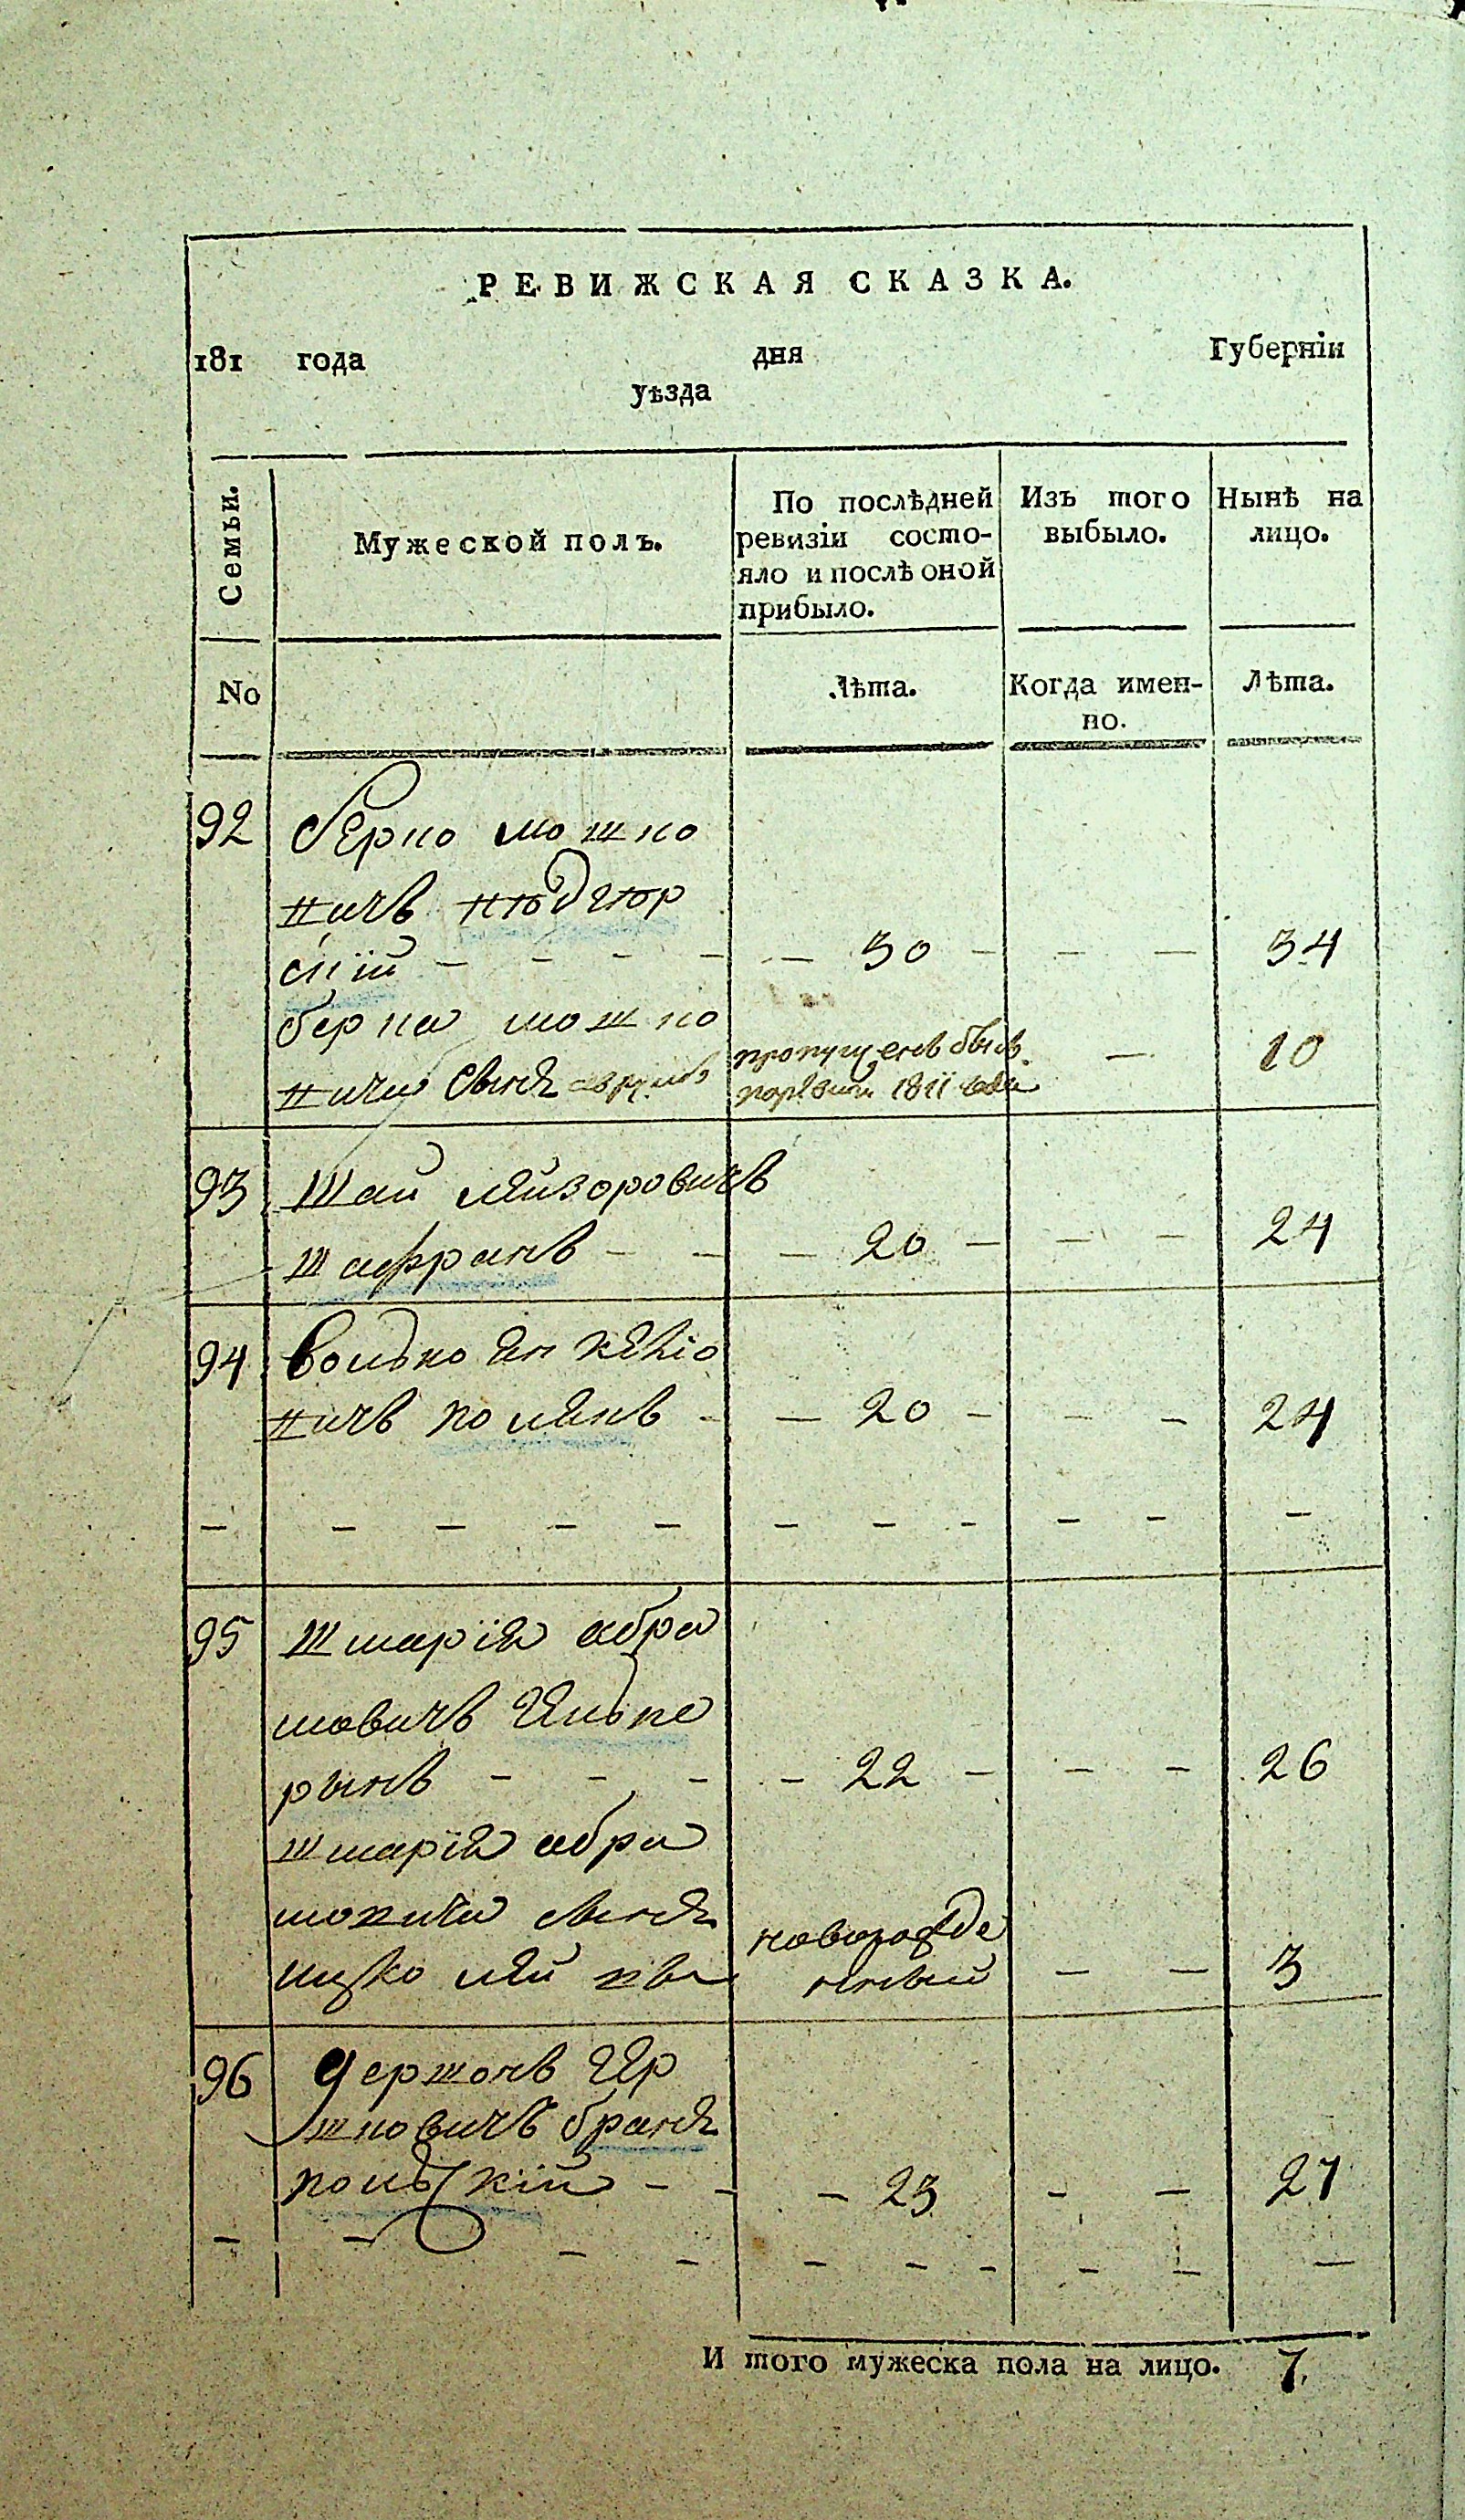 РЕВИЖСКАЯ СКАЗКА.
181 года дня Губерніи
уѣзда
Семьи.
Мужеской полъ.
По послѣдней ревизіи состояло и послѣ оной прибыло.
Изъ того выбыло.
Нынѣ на лицо.
No
Лѣта.
Когда именно.
Лѣта.
92 Берко мошко
вичъ
скій - - - - - 30 - - - 34
берка мошко
вича сынъ пропущенъ былъ - 10
1811 года
93 Шай лейзоровичъ
шафранъ - - - 20 - - - 24
94 волько
вичъ полякъ - - 20 - - - 24
- - - - - - - - - - -
95 Шмарія абра
мовичъ Гальпе
рынъ - - - - 22 - - - 26
шмарія абра
мовича сынъ
ицко лей новорожде
нный - - 3
96 Гершонъ
шковичъ
польскій - - - 23 - - 27
- - - - - - - - - -
И того мужеска пола на лицо. 7.